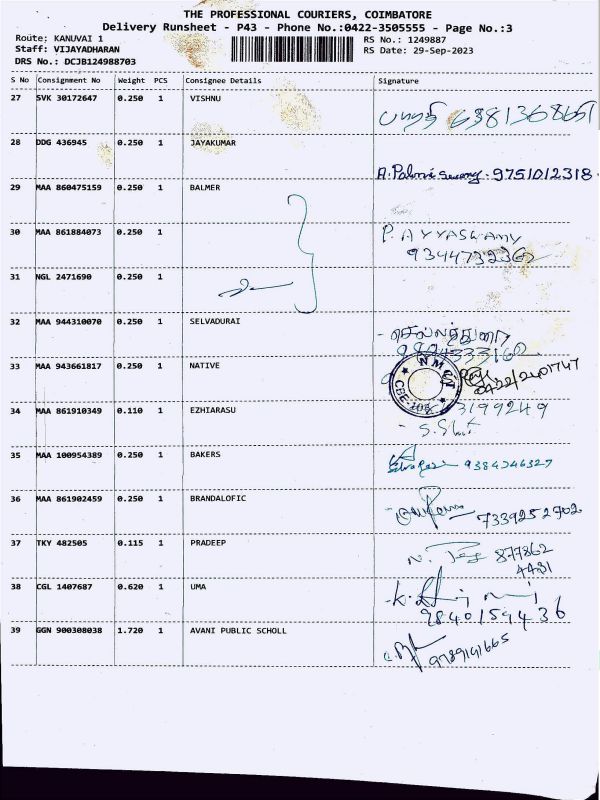 THE PROFESSIONAL COURIERS, COIMBATORE
Delivery Runsheet - P43 - Phone No.:0422-3505555 - Page No.:3
Route: KANUVAI 1 RS No.: 1249887
Staff: VIJAYADHARAN RS Date: 29-Sep-2023
DRS No.: DCJB124988703
S No Consignment No Weight PCS Consignee Details Signature
27 SVK 30172647 0.250 1 VISHNU
28 DDG 436945 0.250 1 JAYAKUMAR
9751012318
29 MAA 860475159 0.250 1 BALMER
30 MAA 861884073 0.250 1 P. AYYASWAMY
31 NGL 2471690 0.250 1
32 MAA 944310070 0.250 1 SELVADURAI
செல்லத்துரை
33 MAA 943661817 0.250 1 NATIVE
34 MAA 861910349 0.110 1 EZHIARASU
35 MAA 100954389 0.250 1 BAKERS
9384346327
36 MAA 861902459 0.250 1 BRANDALOFIC
7339252702
37 TKY 482505 0.115 1 PRADEEP
877862
4431
38 CGL 1407687 0.620 1 UMA
9840159436
39 GGN 900308038 1.720 1 AVANI PUBLIC SCHOLL
9789141665